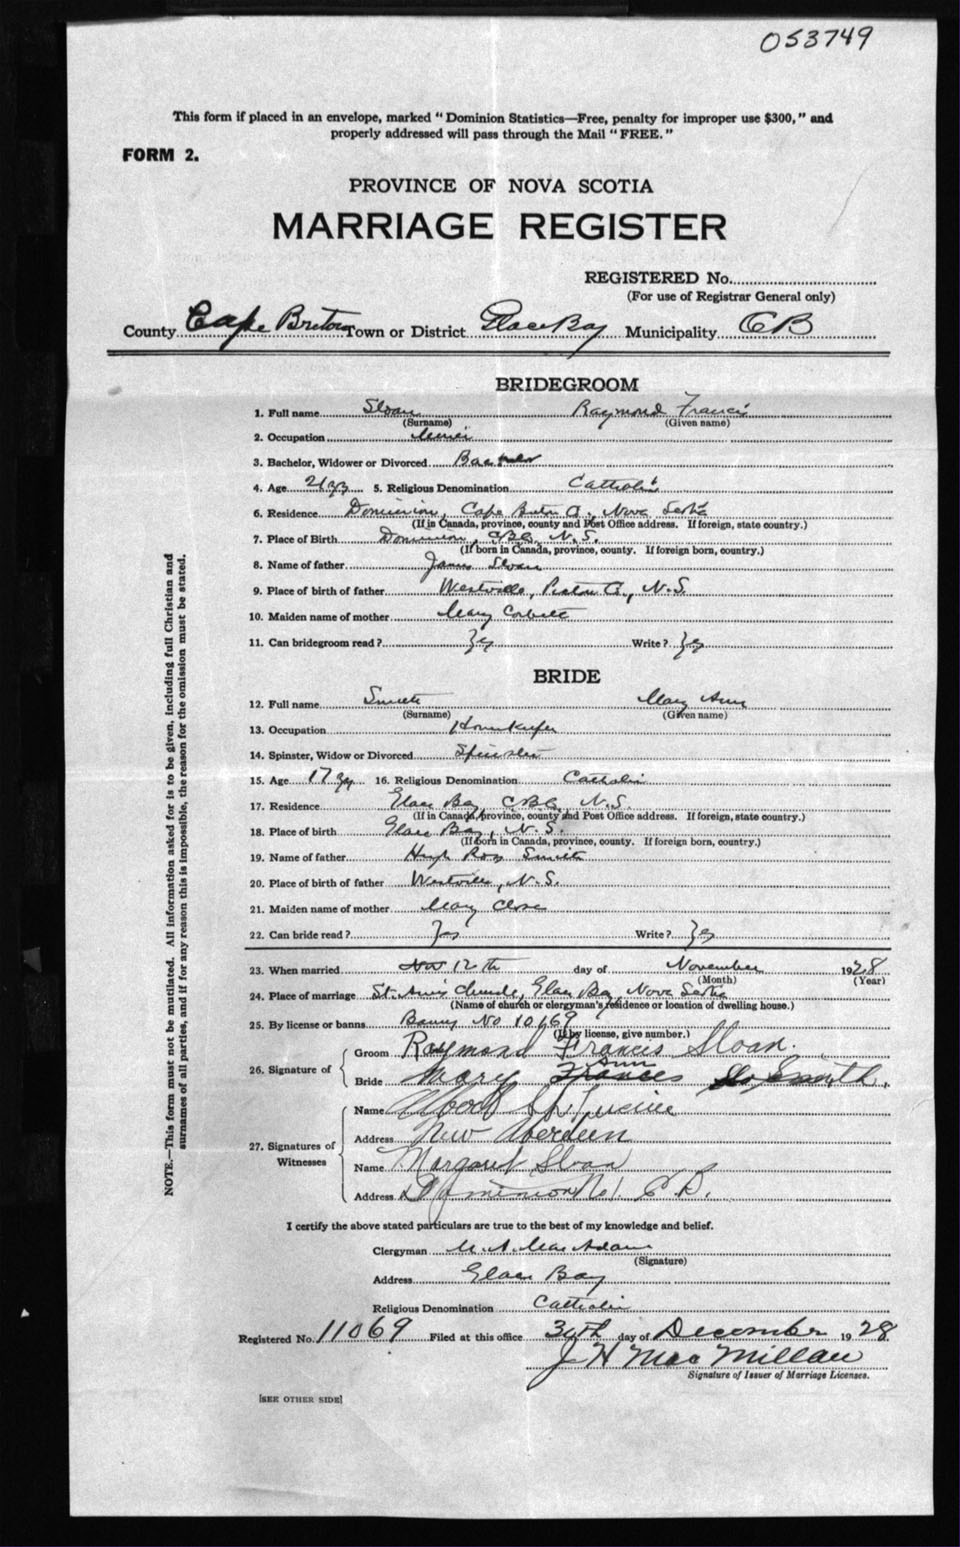 053749
This form if placed in an envelope, marked "Dominion Statistics—Free, penalty for improper use $300," and
properly addressed will pass through the Mail "FREE."
FORM 2.
PROVINCE OF NOVA SCOTIA
MARRIAGE REGISTER
REGISTERED No.
(For use of Registrar General only)
County Cape Breton Town or District Glace Bay Municipality CB
BRIDEGROOM
1. Full name Sloan Raymond Francis
(Surname) (Given name)
2. Occupation Miner
3. Bachelor, Widower or Divorced Bachelor
4. Age 21 yrs 5. Religious Denomination Catholic
6. Residence Dominion, Cape Breton Co, Nova Scotia
(If in Canada, province, county and Post Office address. If foreign, state country.)
7. Place of Birth Dominion, CBC, N.S.
(If born in Canada, province, county. If foreign born, country.)
8. Name of father James Sloan
9. Place of birth of father Westville, Pictou Co., N.S.
10. Maiden name of mother Mary Corbett
11. Can bridegroom read? Yes Write? Yes
BRIDE
12. Full name Smith Mary Ann
(Surname) (Given name)
13. Occupation Housekeeper
14. Spinster, Widow or Divorced Spinster
15. Age 17 yrs 16. Religious Denomination Catholic
17. Residence Glace Bay, CBC, N.S.
(If in Canada, province, county and Post Office address. If foreign, state country.)
18. Place of birth Glace Bay, N.S.
(If born in Canada, province, county. If foreign born, country.)
19. Name of father Hugh Roy Smith
20. Place of birth of father Westville, N.S.
21. Maiden name of mother Mary Close
22. Can bride read? Yes Write? Yes
23. When married Nov 12th day of November 1928
(Month) (Year)
24. Place of marriage St. Ann's Church, Glace Bay, Nova Scotia
(Name of church or clergyman's residence or location of dwelling house.)
25. By license or banns Banns No 10169
(If by license, give number.)
26. Signature of
Groom Raymond Francis Sloan.
Ann
Bride Mary Frances Smith.
27. Signatures of Witnesses
Name
Address New Aberdeen
Name Margaret Sloan
Address Dominion No 1. C B.
I certify the above stated particulars are true to the best of my knowledge and belief.
Clergyman M. A. MacAdam
(Signature)
Address Glace Bay
Religious Denomination Catholic
Registered No. 11069 Filed at this office 30th day of December 1928
J H MacMillan
Signature of Issuer of Marriage Licenses.
[SEE OTHER SIDE]
NOTE.—This form must not be mutilated. All information asked for is to be given, including full Christian and
surnames of all parties, and if for any reason this is impossible, the reason for the omission must be stated.